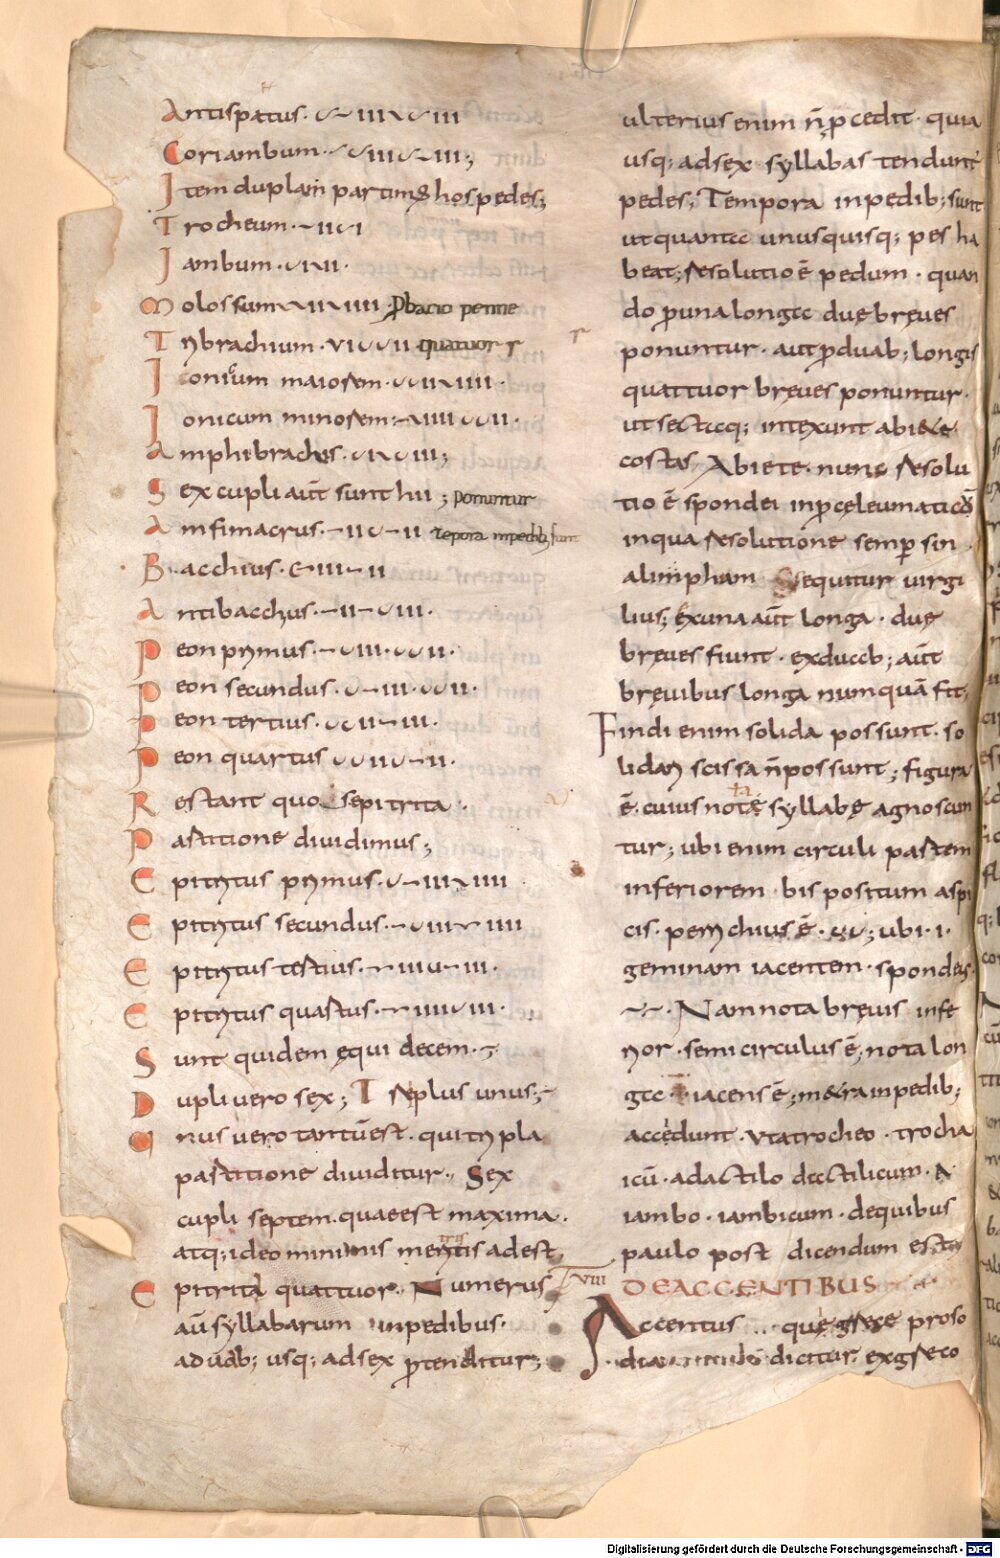 Antispatus · ⏑– III –⏑ III
Coriambum · –⏑ III ⏑– III;
Item duplam partim & hos pedes;
Trocheum · – II ⏑ I
Iambum · ⏑ I – II ·
Molossum – II –– IIII ·
Tribrachium · ⏑ I ⏑⏑ II quattuor
Ionicum maiorem · ⏑⏑ II –– IIII ·
Ionicum minorem : –– IIII ⏑⏑ II ·
Amphibrachis · ⏑ I –⏑ III;
Sexcupli aut̄ sunt hii ; ponuntur
Amfimacrus · – II ⏑– II tēpora inpedib; sunt
Bacchius · ⏑– III – II
Antibacchus · – II –⏑ III ·
Peon primus · –⏑ III · ⏑⏑ II ·
Peon secundus · ⏑– III · ⏑⏑ II ·
Peon tertius · ⏑⏑ II –⏑ III ·
Peon quartus ⏑⏑ II ⏑– II ·
Restant quo sepitrita ·
Partitione dividimus;
Epitritus primus · ⏑– III –– IIII
Epitritus secundus · –⏑ III –– IIII
Epitritus tertius · –– IIII ⏑– III ·
Epitritus quartus · –– IIII –⏑ III ·
Sunt quidem ęqui decem ·
Dupli vero sex; Triplus unus;
unus vero tantū est · qui tripla
partitione dividitur · Sex
cupli septem · quae est maxima ·
atq; ideo minimis adest
Epitrita quattuor · Numerus
aū syllabarum inpedibus ·
aduab; usq; ad sex p̄tenditur;
ulterius enim n̄ p̄cedit · quia
usq; ad sex syllabas tendunt
pedes; Tempora inpedib; sunt
ut quanta unusquisq; pes ha
beat; resolutio ē pedum · quan
do p una longa duę bręves
ponuntur · aut p duab; longis
quattuor bręves ponuntur ·
ut sectaq; intexunt abiete
costas, Abiete · nunc resolu
tio ē spondei inp̄celeumaticō
in qua resolutione semp sin
alimpham sequitur virgi
lius; ex una aūt longa · duę
bręves fiunt · ex duab; aūt
bręvibus longa numquā fit;
Findi enim solida possunt · so
lidari scissa n̄ possunt; figura
ē · cuius notę syllabę agnoscun
tur; ubi enim circuli partem
inferiorem · bis positum aspi
cis · perrichius ē · ⏑⏑; ubi · I ·
geminam iacentem · spondeus ·
–– · Nam nota brevis infe
rior · semicirculus ē; nota lon
ga · iacens ē; m&ra inpedib;
accedunt · ut a trocheo · trocha
icū · a dactilo dactilicum · a
iambo · iambicum · de quibus
paulo post dicendum est
VIII DE ACCENTIBUS
Accentus · quę grece proso
dia dicitur · ex greco
Digitalisierung gefördert durch die Deutsche Forschungsgemeinschaft - DFG